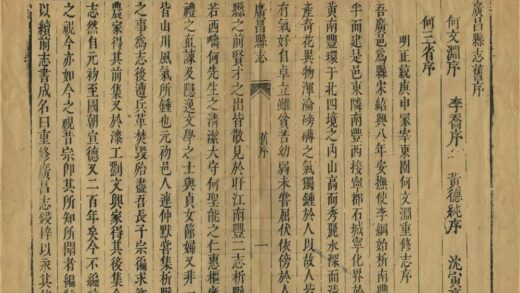 廣昌縣志舊序
何文淵序 李喬序 黃德純序 沈寅
何三省序
明正統庚申冢宰東園何文淵重修志序
吾廣邑爲縣宋紹興八年安撫使李綱始析南豐
半而建是邑東隣南豐西接寧都石城寧化界於
黃南豐環于北四境之內山高而秀麗水深而清
產奇花異物渾淪磅礴之氣獨鍾於人以故人若
有氣好自卓立雖貧苦幼弱未嘗屈伏依傍於人
廣昌縣志 舊序 一
縣之前賢才之出皆散見於盱江南豐二志析縣
若西疇何先生之清潔大寺何聖能之仁惠樞
禮之直諫及隱逸文學之士與貞女節婦又非
皆山川風氣所鍾也元初邑人連仲默嘗集析縣
之事爲志後遭兵革焚毁殆盡吾長子宗徧求
農家得其前集又於漆工劉文興家得其後集
志然自元初至國朝宣德又二百年矣今不編
之視今亦如今之視昔宗卽其所知所聞者編
以續前志書成名曰重修廣昌志鋟梓以永其